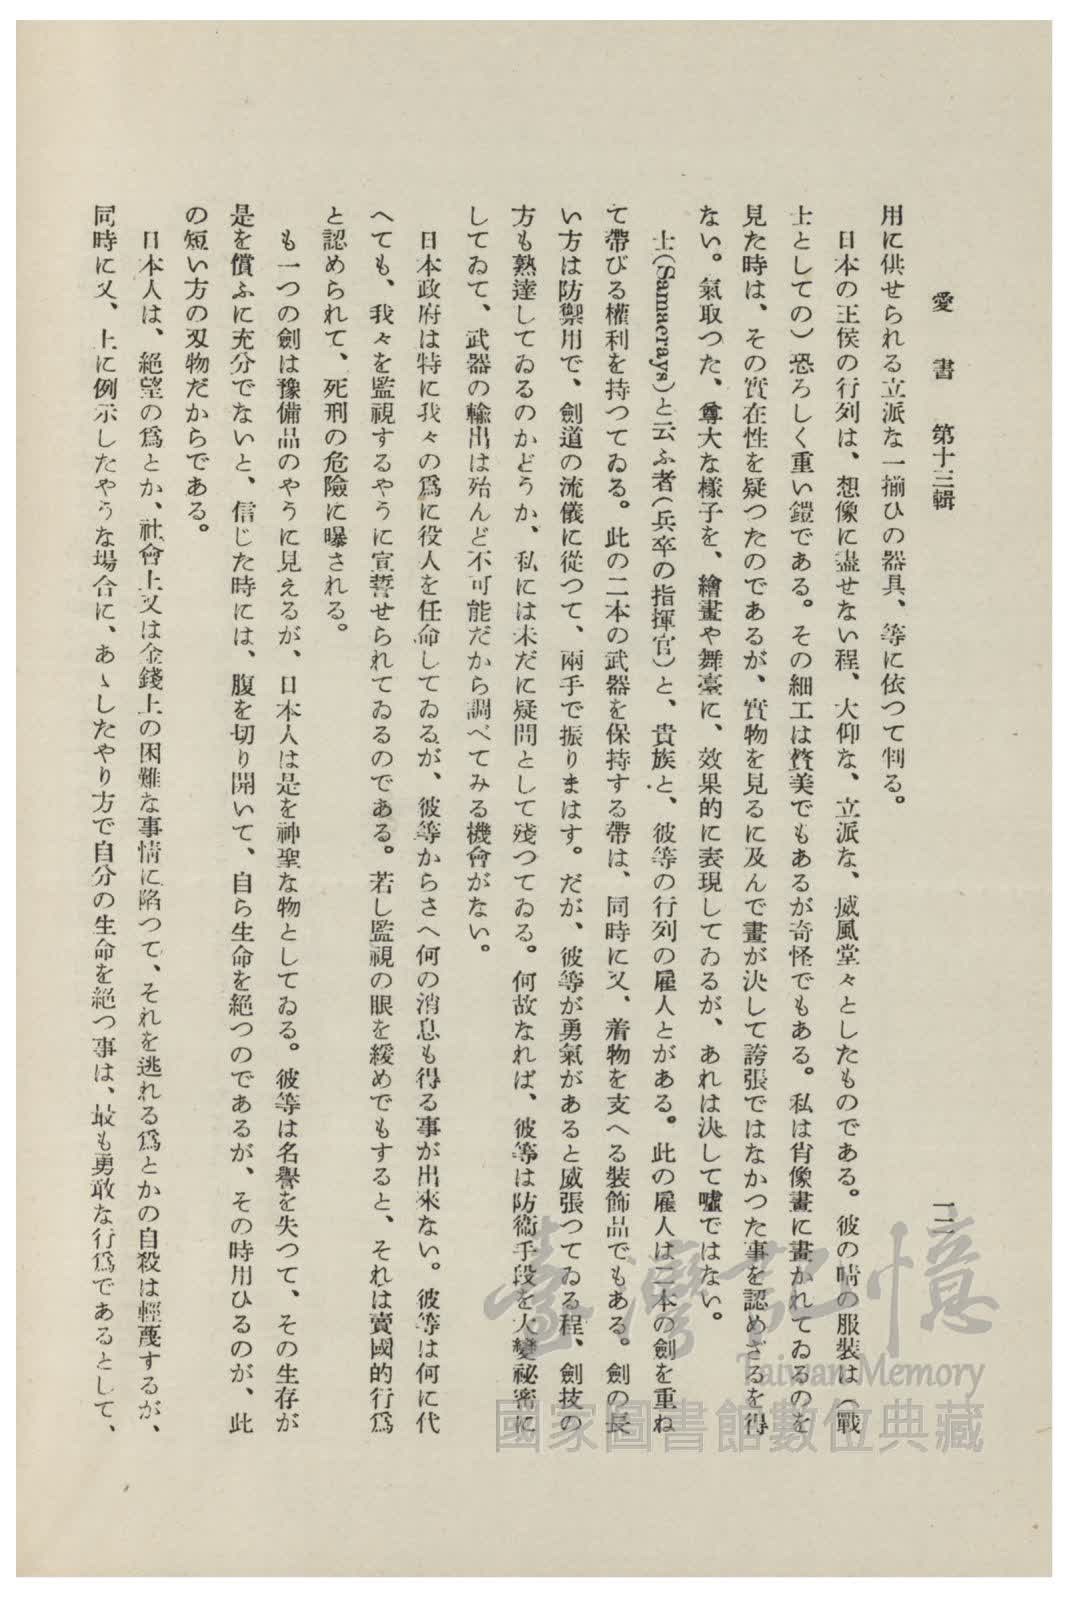 愛書 第十三輯
一二
用に供せられる立派な一揃ひの器具、等に依つて判る。
日本の王侯の行列は、想像に盡せない程、大仰な、立派な、威風堂々としたものである。彼の晴の服裝は（戰
士としての）恐ろしく重い鎧である。その細工は贅美でもあるが奇怪でもある。私は肖像畫に畫かれてゐるのを
見た時は、その實在性を疑つたのであるが、實物を見るに及んで畫が決して誇張ではなかつた事を認めざるを得
ない。氣取つた、尊大な樣子を、繪畫や舞臺に、效果的に表現してゐるが、あれは決して噓ではない。
士（Samacrays）と云ふ者（兵卒の指揮官）と、貴族と、彼等の行列の雇人とがある。此の雇人は二本の劍を重ね
て帶びる權利を持つてゐる。此の二本の武器を保持する帶は、同時に又、着物を支へる裝飾品でもある。劍の長
い方は防禦用で、劍道の流儀に從つて、兩手で振りまはす。だが、彼等が勇氣があると威張つてゐる程、劍技の
方も熟達してゐるのかどうか、私には未だに疑問として殘つてゐる。何故なれば、彼等は防衞手段を大變祕密に
してゐて、武器の輸出は殆んど不可能だから調べてみる機會がない。
日本政府は特に我々の爲に役人を任命してゐるが、彼等からさへ何の消息も得る事が出來ない。彼等は何に代
へても、我々を監視するやうに宣誓せられてゐるのである。若し監視の眼を緩めでもすると、それは賣國的行爲
と認められて、死刑の危險に曝される。
も一つの劍は豫備品のやうに見えるが、日本人は是を神聖な物としてゐる。彼等は名譽を失つて、その生存が
是を償ふに充分でないと、信じた時には、腹を切り開いて、自ら生命を絶つのであるが、その時用ひるのが、此
の短い方の刄物だからである。
日本人は、絶望の爲とか、社會上又は金錢上の困難な事情に陷つて、それを逃れる爲とかの自殺は輕蔑するが、
同時に又、上に例示したやうな場合に、あゝしたやり方で自分の生命を絶つ事は、最も勇敢な行爲であるとして、
臺灣記憶
Taiwan Memory
國家圖書館數位典藏